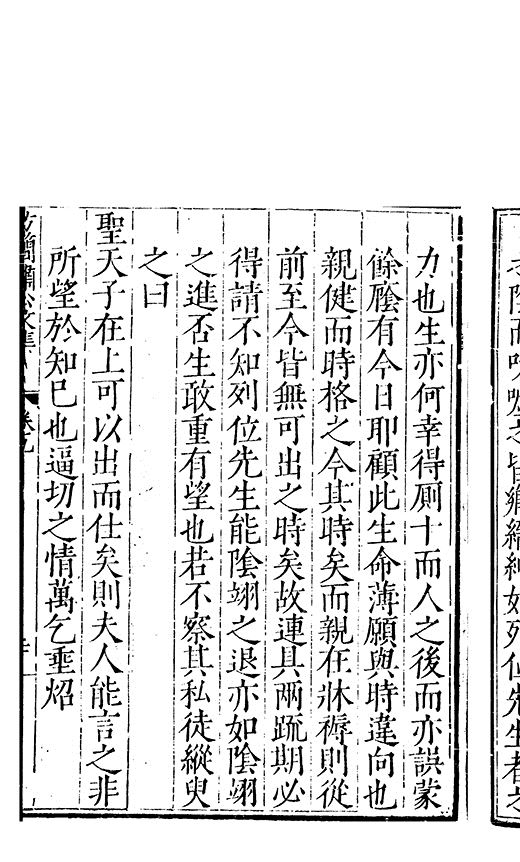 才陰而吹噓之皆鄉縉紳如列位先生者之
力也生亦何幸得廁十而人之後而亦誤蒙
餘廕有今日耶顧此生命薄願與時違向也
親健而時格之今其時矣而親在牀褥則從
前至今皆無可出之時矣故連具兩疏期必
得請不知列位先生能陰翊之退亦如陰翊
之進否生敢重有望也若不察其私徒縱臾
之曰
聖天子在上可以出而仕矣則夫人能言之非
所望於知巳也逼切之情萬乞垂炤
方簡肅公文集
卷九